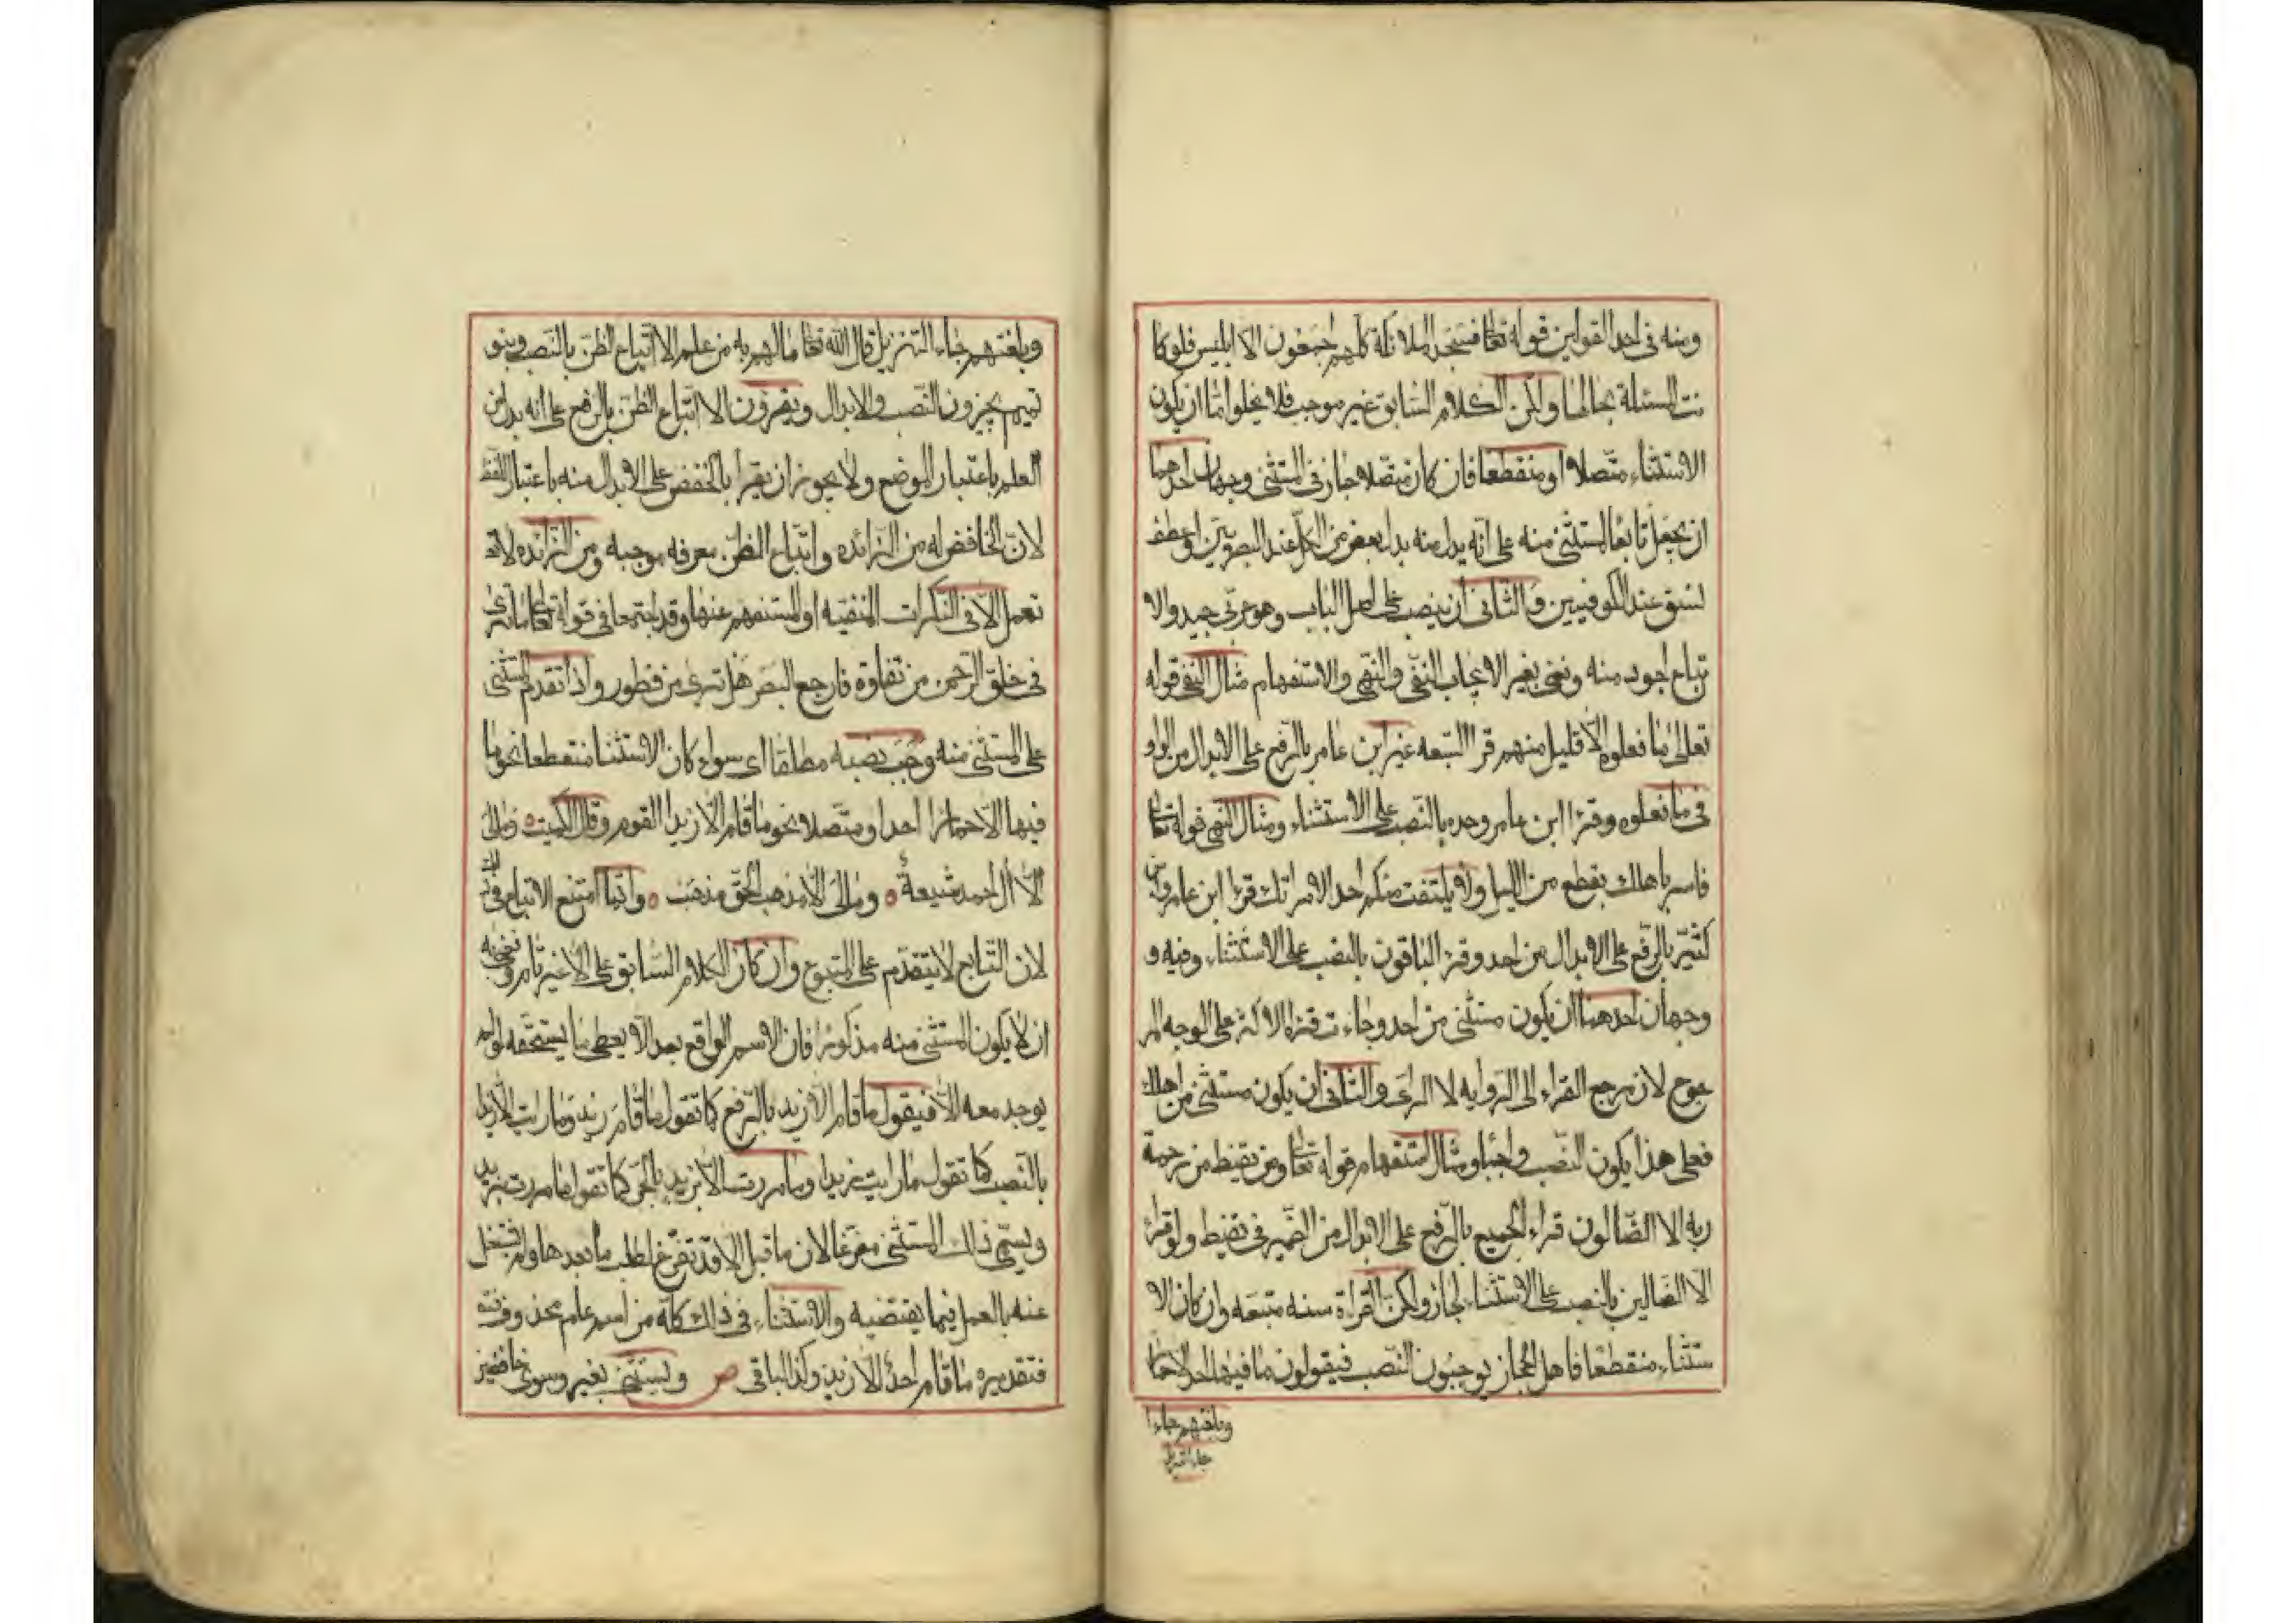 ومنه فى احد القولين قوله تعا فسجد الملائكة كلهم اجمعون الا ابليس فلو كا
نت المسئلة بحالها ولكن الكلام السّابق غير موجب فلا يخلوا امّا ان يكون
الاستثناء متّصلا او منقطعا فان كان متّصلا جاز فى المستثنى وجهان احدهما
ان يجعل تابعًا للمستثنى منه على انّه بدل منه بدل بعض من الكلّ عند البصريّين او عطف
نسق عند الكوفيين والثّانى ان ينصب على اصل الباب وهو عربّى جيد والا
تباع اجود منه ونعنى بغير الايجاب النّفى والنّهى والاستفهام مثال النّفى قوله
تعالى مٰا فعلوه الّا قليل منهم قرا السّبعه غير ابن عامر بالرّفع على الابدال من الواو
فى مٰا فعلوه وقرا ابن عامر وحده بالنّصب على الاستثناء ومثال النّهى قوله تعا
فاسر باهلك بقطع من الليل ولا يلتفت منكم احد الا امراتك قرا ابن عامر وابن
كثير بالرّفع على الابدال من احد وقرا الباقون بالنصب على الاستثناء وفيه و
وجهان احدهما ان يكون مستثنى من احد وجاءت قراة الاكثر على الوجه المر
جوح لان مرجع القراء الى الروايه لا الراى والثّانى ان يكون مستثنى من اهلك
فعلى هذا يكون النّصب واجبا ومثال استفهام قوله تعا ومن يقنط من رحمة
ربه الا الضّالون قراء الجميع بالرّفع على الابدال من الضّمير فى يقنط ولو قرا
الّا الضالين بالنصب على الاستثناء لجاز ولكن القراة سنه متبعه وان كان الا
ستثناء منقطعا فاهل الحجاز يوجبون النّصب فيقولون مٰا فيها احد الا حمارا
وبلغتهم جاء ا
جاء التنزيل
وبلغتهم جاء التنزيل قال الله تعا مالهم به من علم الا اتّباع الظنّ بالنّصب وبنو
تميم يجيزون النّصب والابدال ويقرؤن الا اتّباع الظنّ بالرفع على انه بدل من
العلم باعتبار الموضع ولا يجوز ان يقرا بالخفض على الابدال منه باعتبار اللّفظ
لانّ الخافض له من الزائده واتباع الظنّ معرفه موجبه ومن الزائده لا
تعمل الّا فى النكرات المنفيّه او المستفهم عنها وقد اجتمعا فى قوله تعا مٰا ترى
فى خلق الرّحمن من تفاوة فارجع البصر هل ترى من فطور واذا تقدم المستثنى
على المستثنى منه وجب نصبه مطلقا اى سواء كان الاستثنا منقطعا نحو مٰا
فيها الّا حمارا احد او متّصلا نحو مٰا قام الّا زيدا القوم وقال الكميت ومٰا لى
الّا آل احمد شيعةٌ ۰ ومٰا لى الّا مذهب الحقّ مذهب ۰ وانّما امتنع الاتباع فى ذلك
لان التّابع لا يتقدّم على المتبوع وان كان الكلام السّابق على الّا غير تام ونعنى به
ان لا يكون المستثنى منه مذكورا فان الاسم الواقع بعد الّا يعطى مٰا يستحقه لو لم
يوجد معه الّا فيقول مٰا قام الّا زيد بالرّفع كما تقول مٰا قام زيد ومٰا رايت الّا زيدا
بالنّصب كما تقول مٰا رايت زيدا وما مررت الّا بزيد بالجر كما تقول مٰا مررت بزيد
ويسمّى ذلك المستثنى مفرّغا لان ما قبل الّا قد تفرّغ لطلب مٰا بعدها ولم يشتغل
عنه بالعمل فيما يقتضيه والاستثناء فى ذلك كلّه من اسم عام محذوف
فتقديره مٰا قام احدٌ الّا زيد وكذا الباقى ص ويستثنى بغير وسوى خافضين